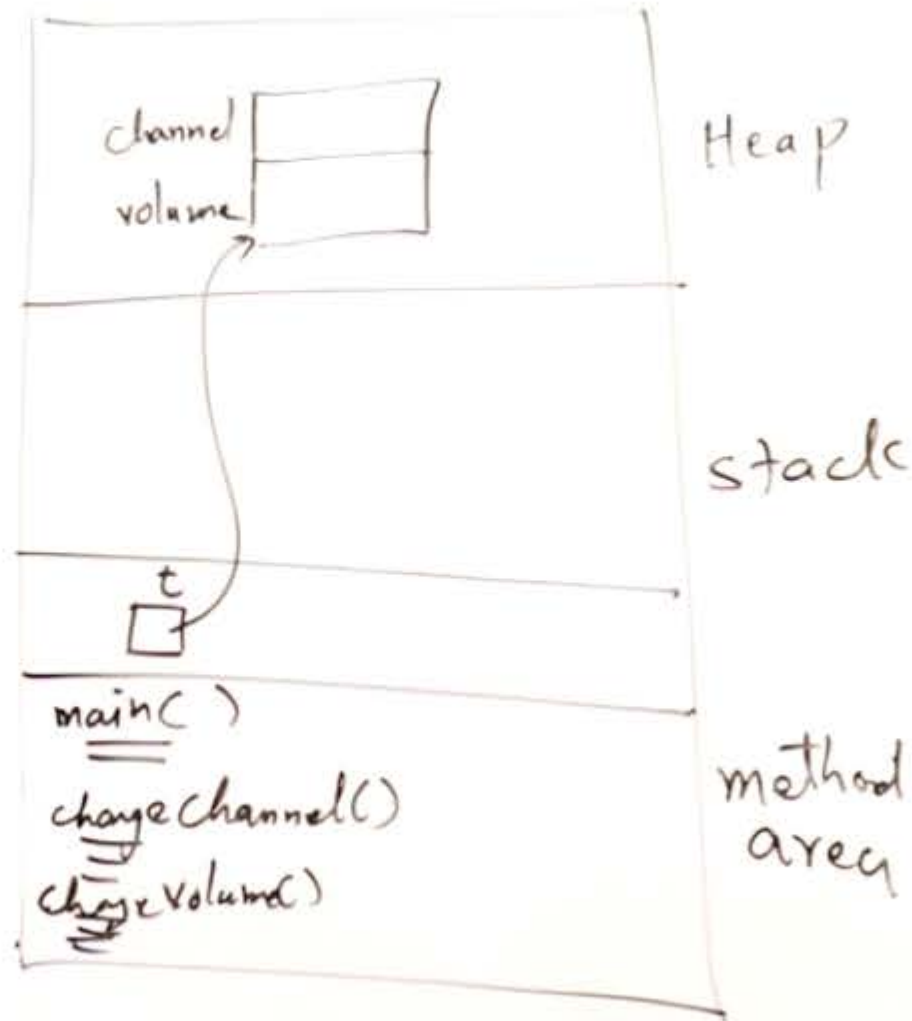 channel
volume
Heap
stack
t
main( )
changeChannel()
changeVolume()
method
area